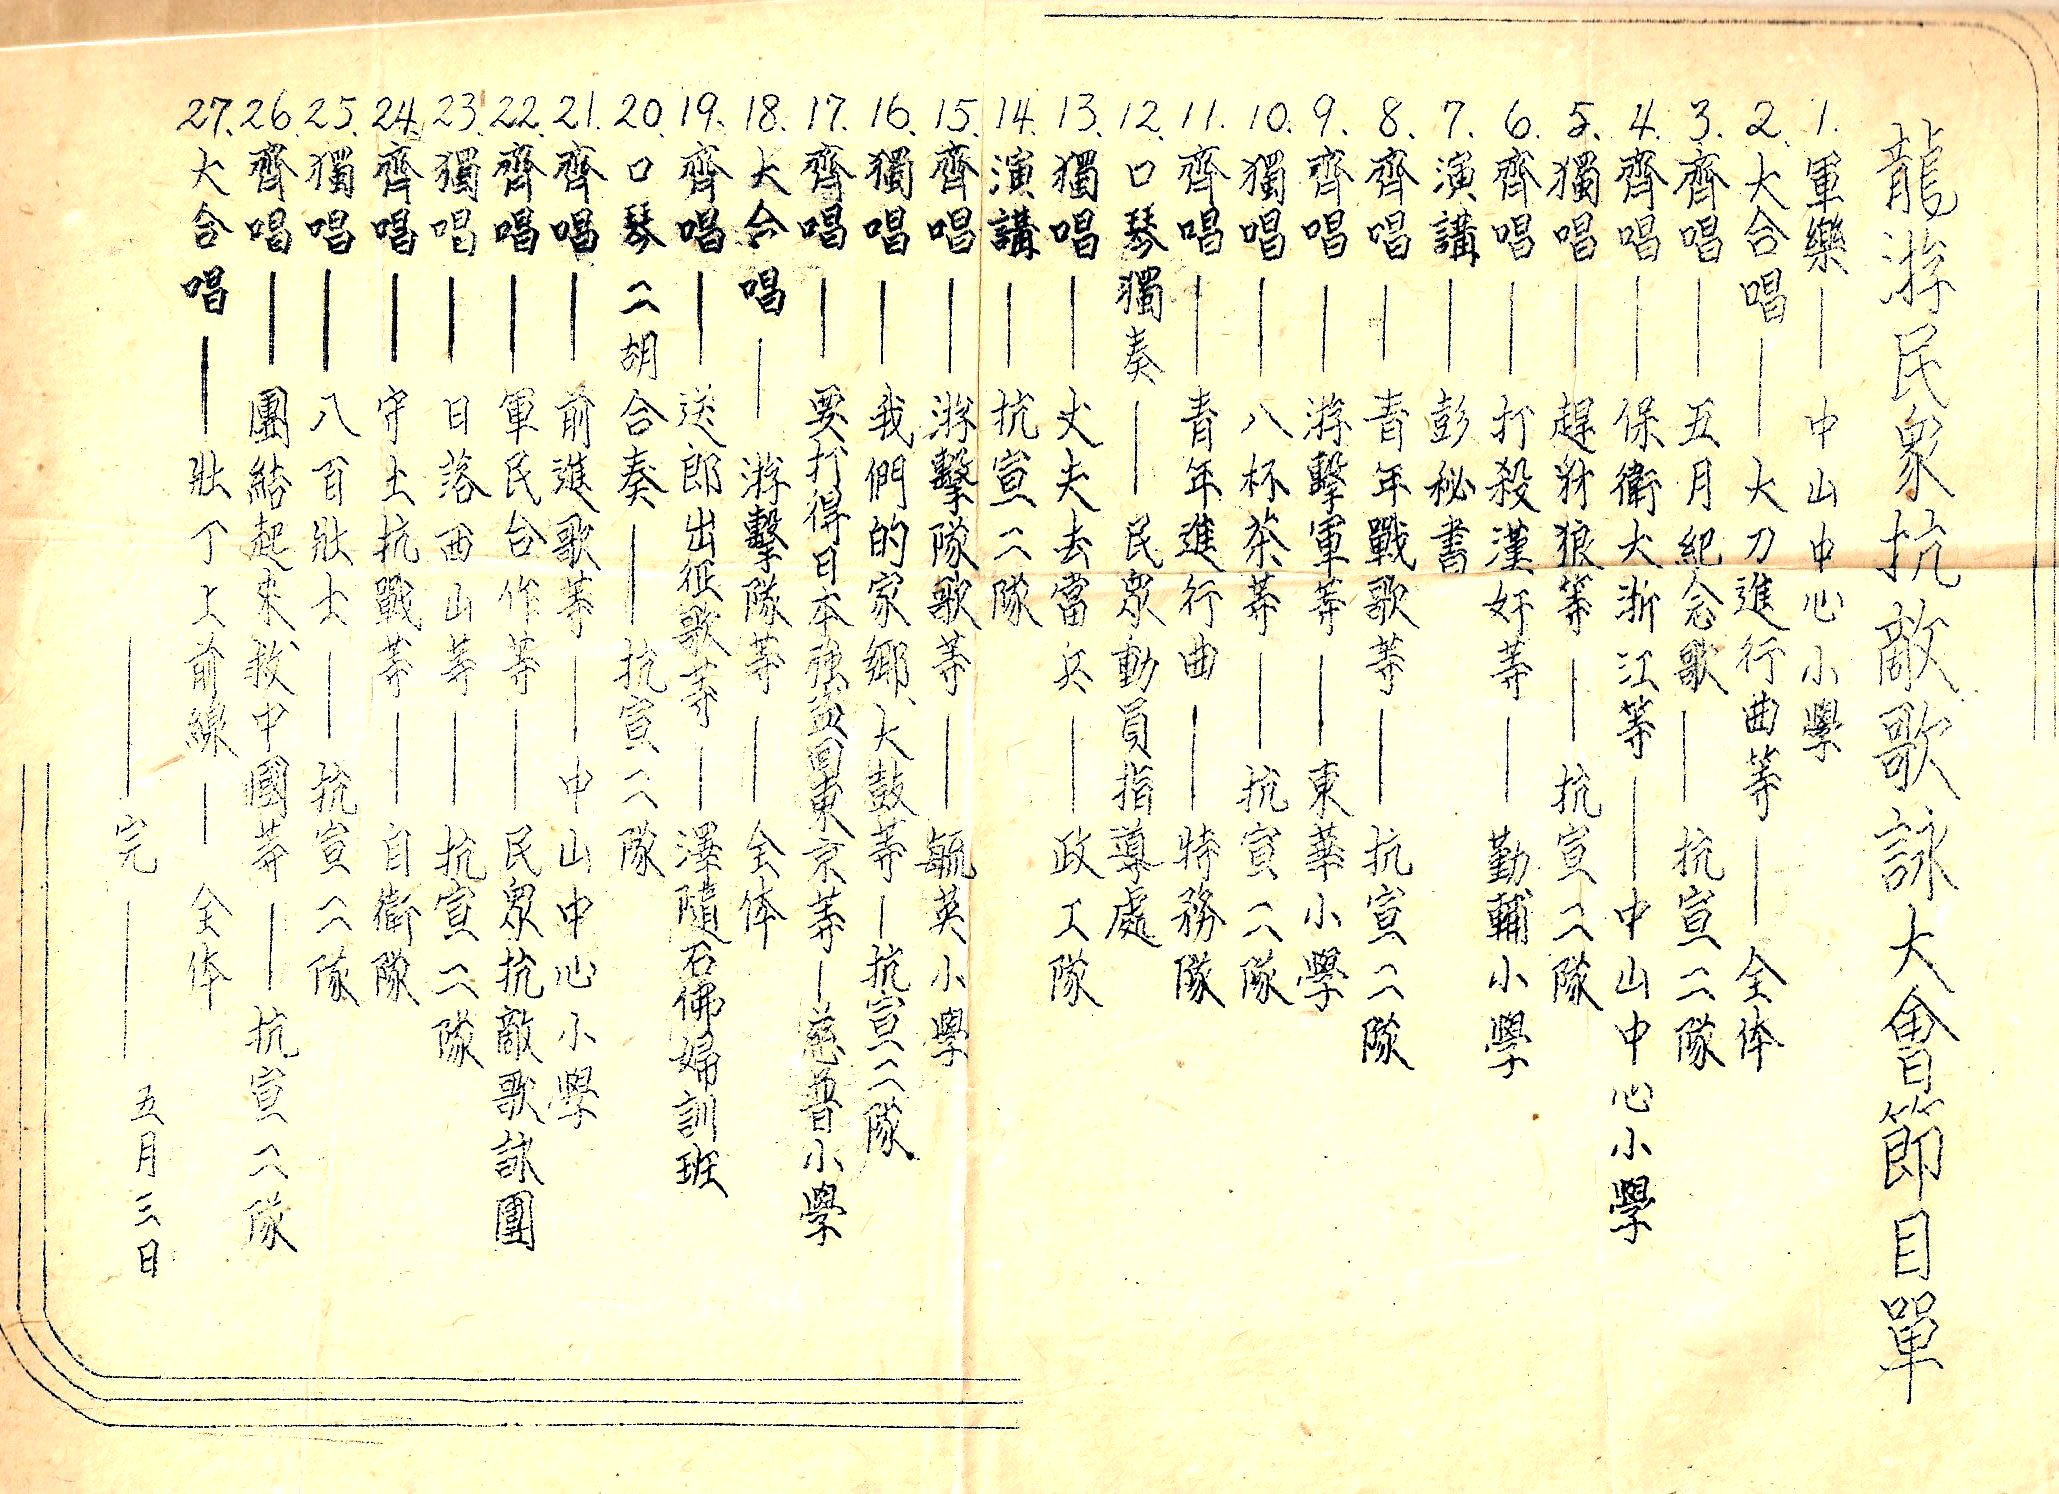 龍游民眾抗敵歌詠大會節目單
1. 軍樂——中山中心小學
2. 大合唱——大刀進行曲等——全体
3. 齊唱——五月紀念歌——抗宣二隊
4. 齊唱——保衛大浙江等——中山中心小學
5. 獨唱——趕豺狼等——抗宣二隊
6. 齊唱——打殺漢奸等——勤輔小學
7. 演講——彭秘書
8. 齊唱——青年戰歌等——抗宣二隊
9. 齊唱——游擊軍等——東華小學
10. 獨唱——八杯茶等——抗宣二隊
11. 齊唱——青年進行曲——特務隊
12. 口琴獨奏——民眾動員指導處
13. 獨唱——丈夫去當兵——政工隊
14. 演講——抗宣二隊
15. 齊唱——游擊隊歌等——毓英小學
16. 獨唱——我們的家鄉、大鼓等—抗宣二隊
17. 齊唱——要打得日本強盜回東京等—慈普小學
18. 大合唱——游擊隊等——全体
19. 齊唱——送郎出征歌等—澤隨石佛婦訓班
20. 口琴二胡合奏——抗宣二隊
21. 齊唱——前進歌等——中山中心小學
22. 齊唱——軍民合作等——民眾抗敵歌詠團
23. 獨唱——日落西山等——抗宣二隊
24. 齊唱——守土抗戰等——自衛隊
25. 獨唱——八百壯士——抗宣二隊
26. 齊唱——團結起來救中國等——抗宣二隊
27. 大合唱——壯丁上前線—全体
——完——
五月三日